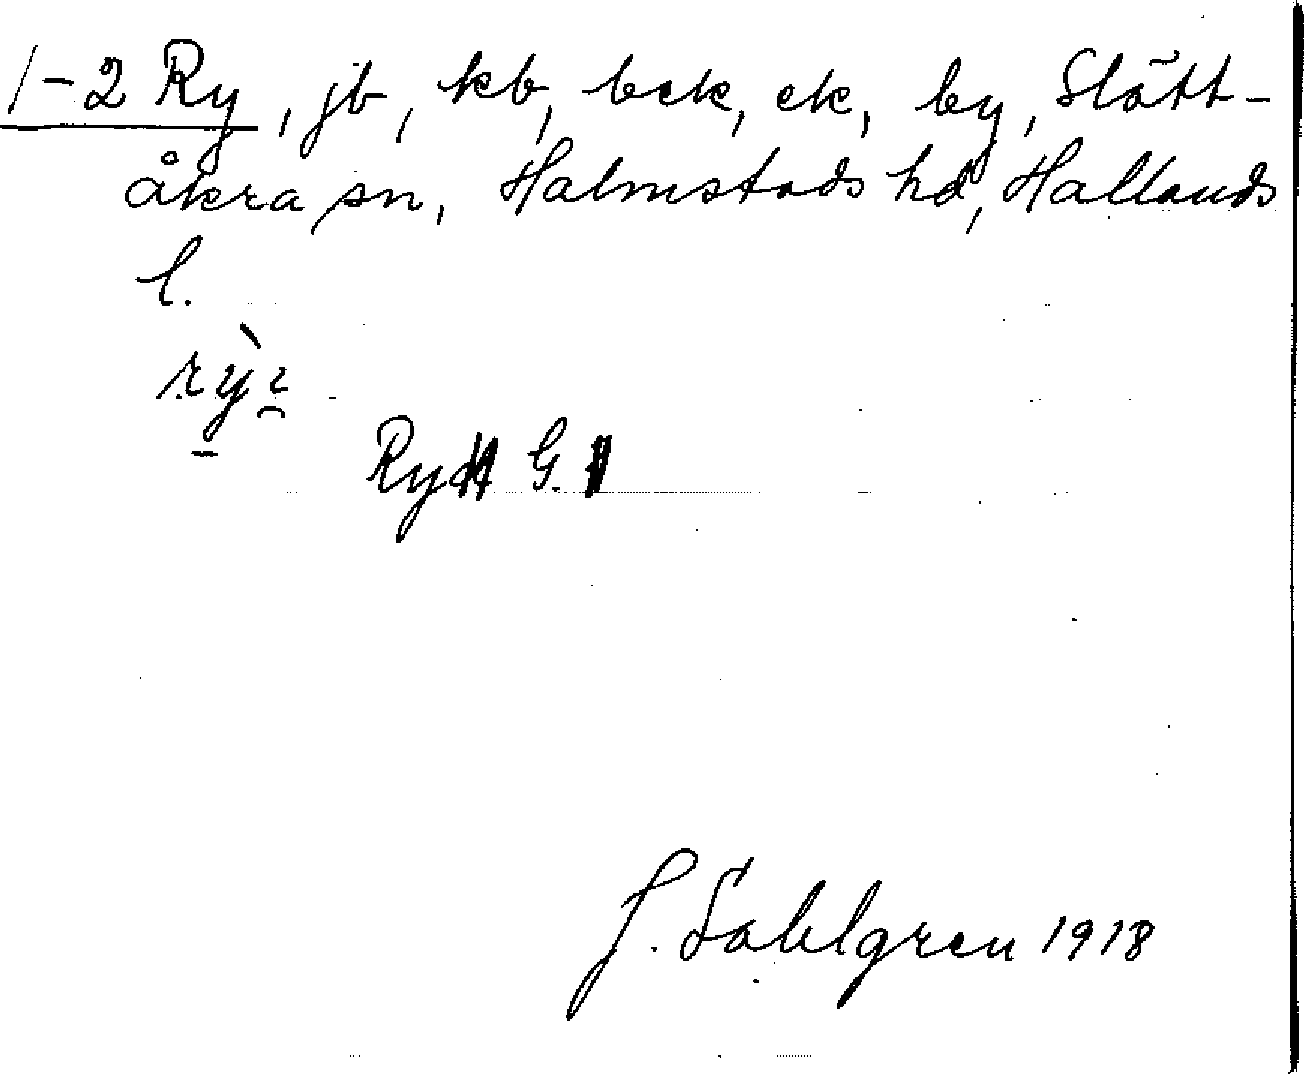 1-2 Ry, jb, kb, bck, ek, by, Slätt-
åkra sn, Halmstads hd, Hallands
l.
Ry G.
J. Sahlgren 1918